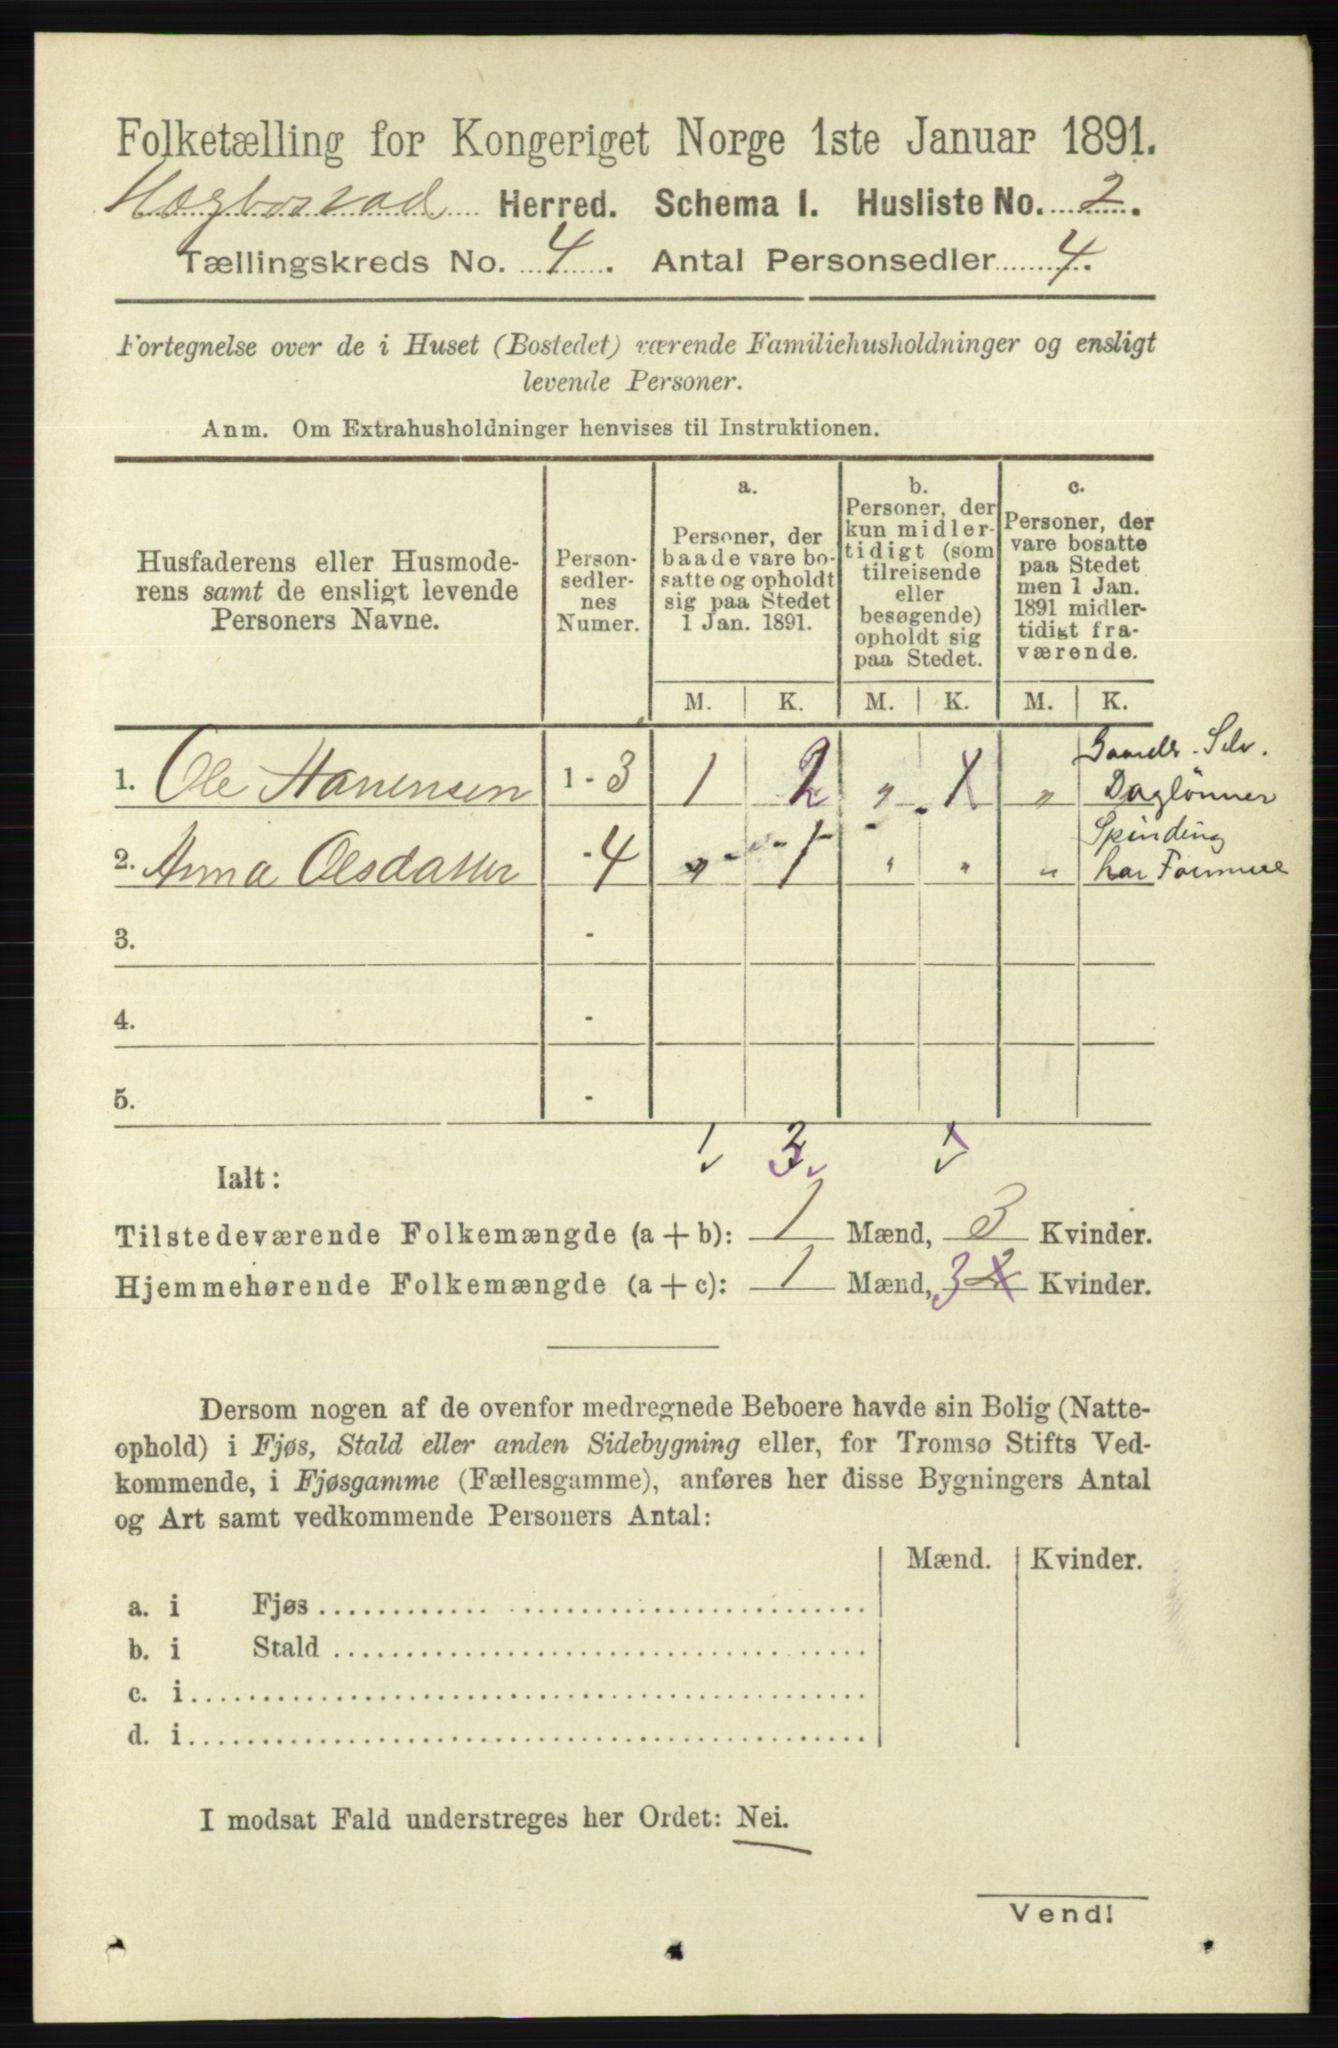 Folketælling for Kongeriget Norge 1ste Januar 1891.
Hægbostad Herred. Schema I. Husliste No. 2.
Tællingskreds No. 4. Antal Personsedler 4.
Fortegnelse over de i Huset (Bostedet) værende Familiehusholdninger og ensligt
levende Personer.
Anm. Om Extrahusholdninger henvises til Instruktionen.
Husfaderens eller Husmode-
rens samt de ensligt levende
Personers Navne.
Person-
sedler-
nes
Numer.
a.
Personer, der
baade vare bo-
satte og opholdt
sig paa Stedet
1 Jan. 1891.
b.
Personer, der
kun midler-
tidigt (som
tilreisende
eller
besøgende)
opholdt sig
paa Stedet.
c.
Personer, der
vare bosatte
paa Stedet
men 1 Jan.
1891 midler-
tidigt fra-
værende.
M. K. M. K. M. K.
1. Ole Hanensen 1 - 3 1 2 „ 1 „ Selv.
Daglønner
2. Anna Olsdatter - 4 „ 1 „ „ „ Spinding
har Formue
3. -
4. -
5. -
1 3 1
Ialt:
Tilstedeværende Folkemængde (a + b): 1 Mænd, 3 Kvinder.
Hjemmehørende Folkemængde (a + c): 1 Mænd, 3 2 Kvinder.
Dersom nogen af de ovenfor medregnede Beboere havde sin Bolig (Natte-
ophold) i Fjøs, Stald eller anden Sidebygning eller, for Tromsø Stifts Ved-
kommende, i Fjøsgamme (Fællesgamme), anføres her disse Bygningers Antal
og Art samt vedkommende Personers Antal:
Mænd. Kvinder.
a. i Fjøs
b. i Stald
c. i
d. i
I modsat Fald understreges her Ordet: Nei.
Vend!